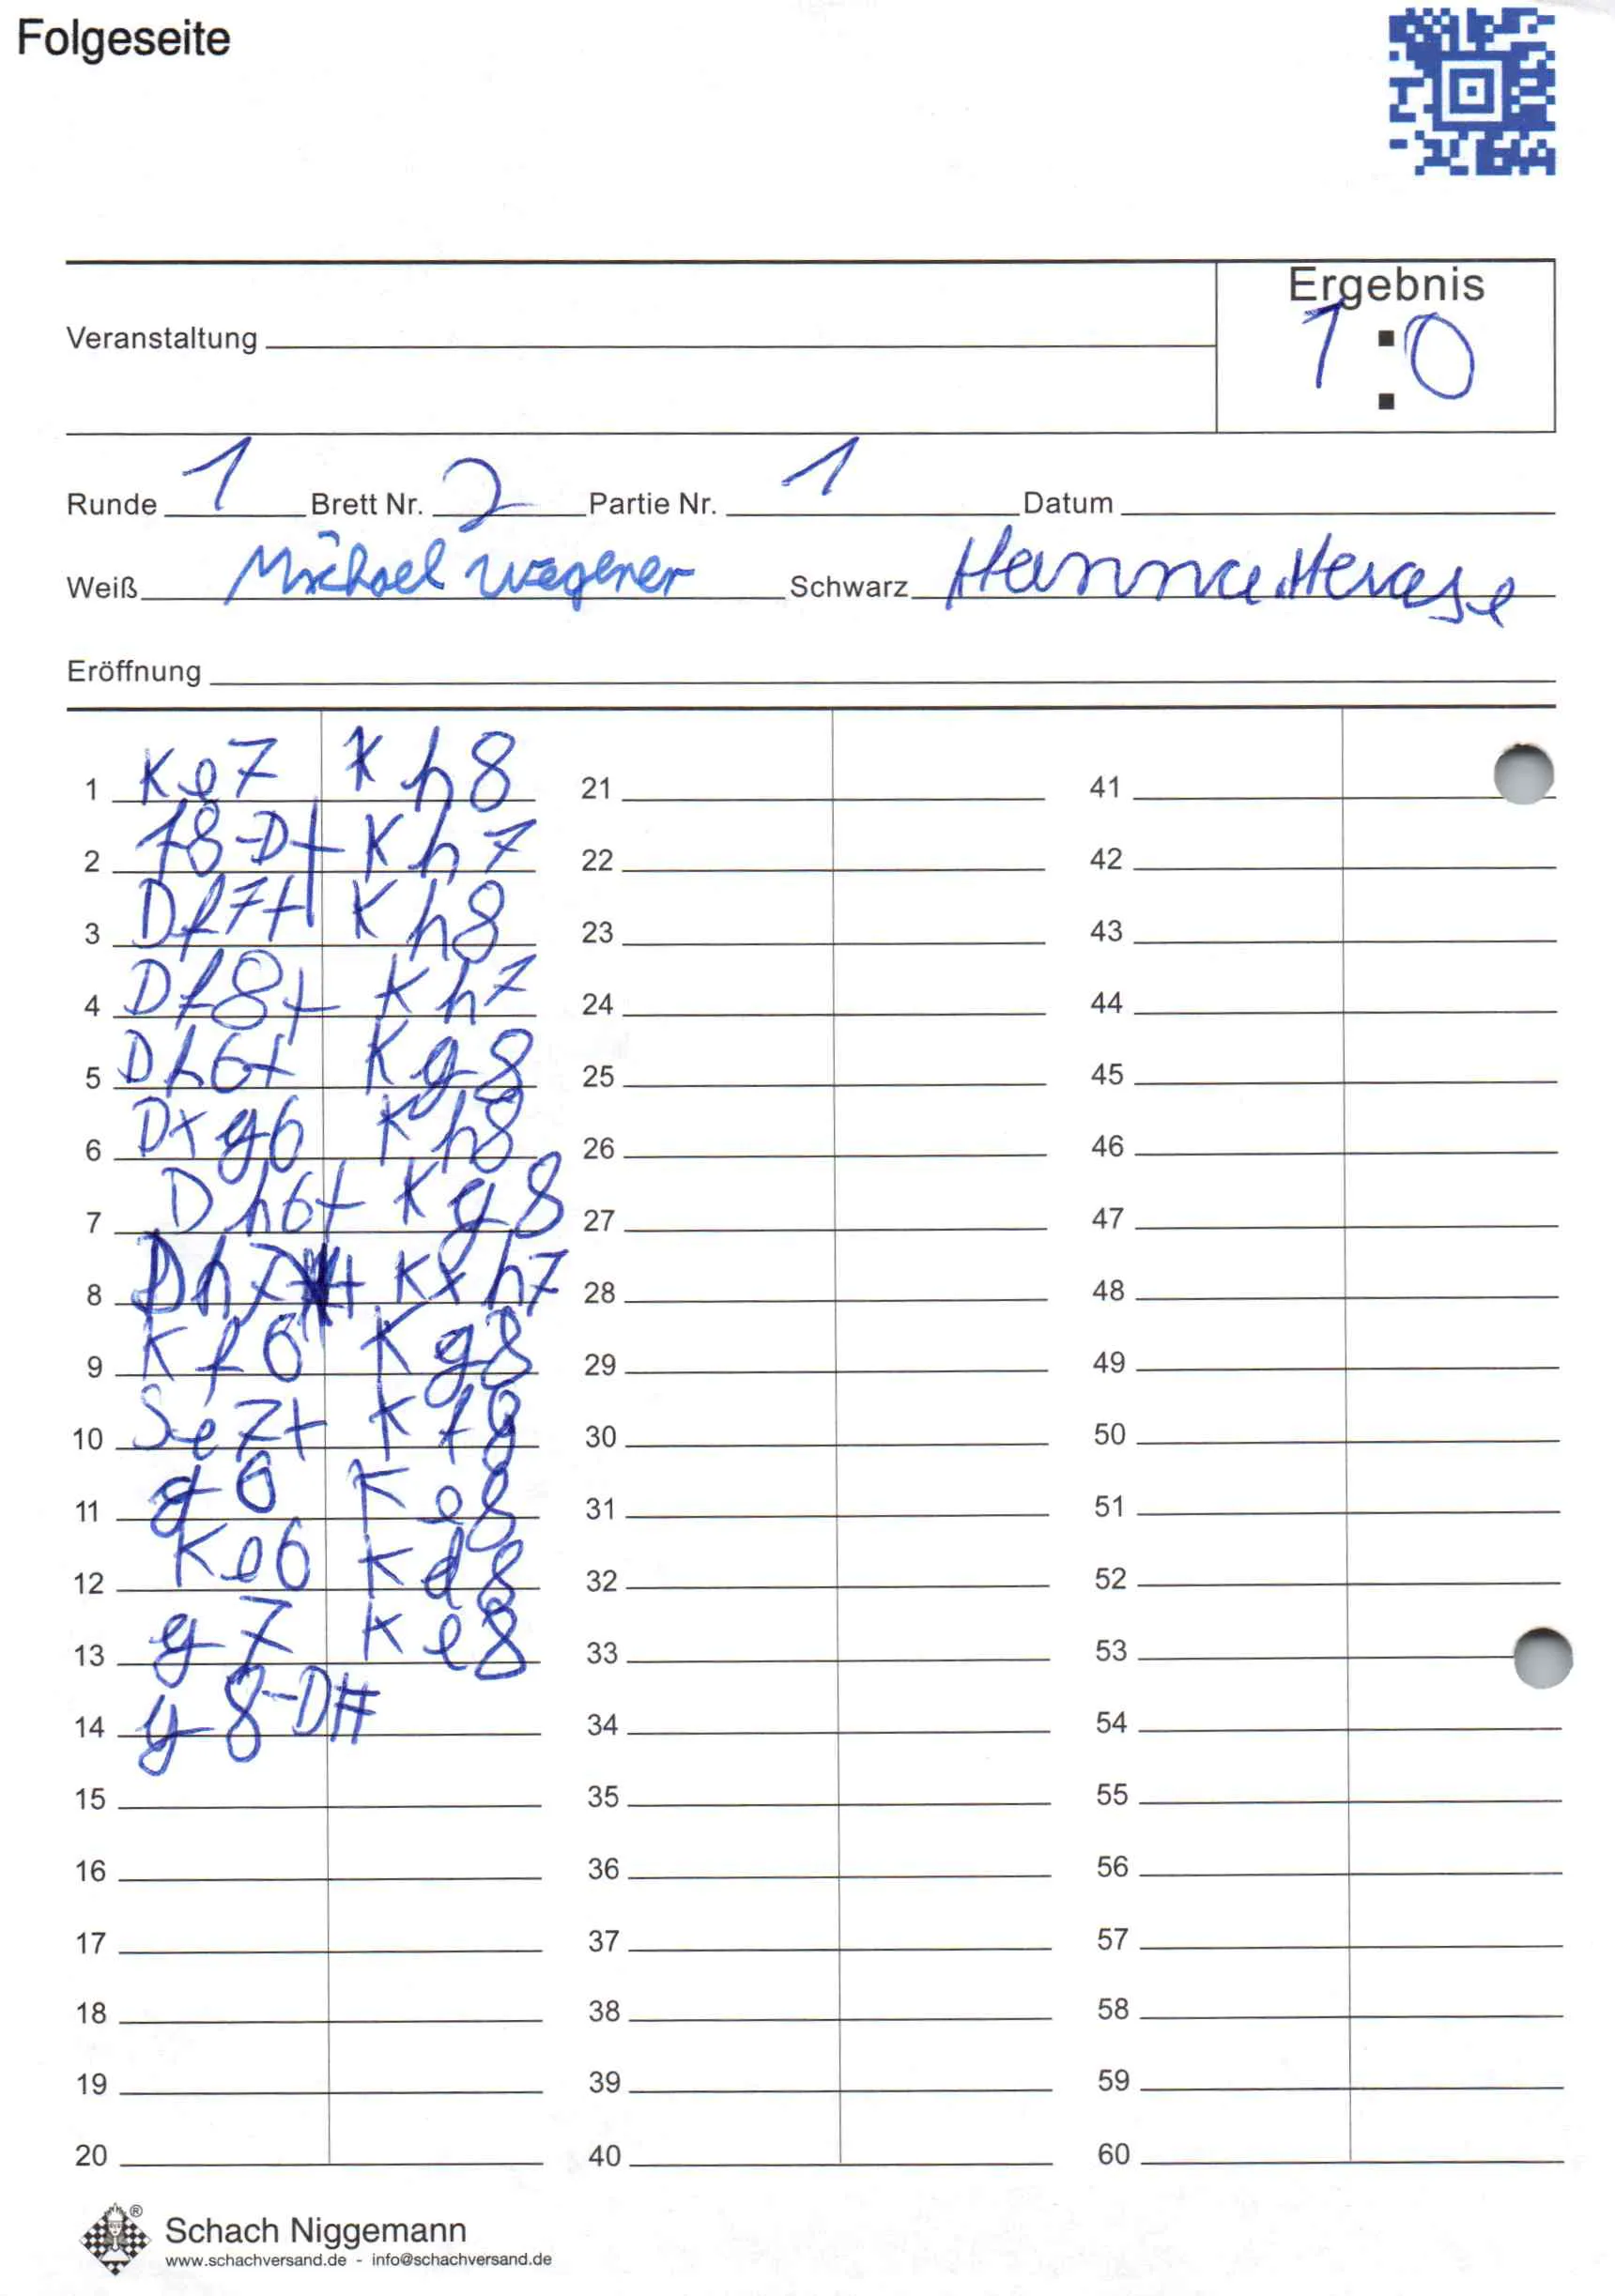 Folgeseite
Ergebnis
1 : 0
Veranstaltung
Runde 1 Brett Nr. 2 Partie Nr. 1 Datum
Weiß Michael Wegener Schwarz Hanna
Eröffnung
1 Ke7 Kh8 21 41
2 f8-D+ Kh7 22 42
3 Df7+ Kh8 23 43
4 Df8+ Kh7 24 44
5 Dh6+ Kg8 25 45
6 Dxg6 Kh8 26 46
7 Dh6+ Kg8 27 47
8 Dh7+ Kxh7 28 48
9 Kf6 Kg8 29 49
10 Se7+ Kf8 30 50
11 g6 Ke8 31 51
12 Ke6 Kd8 32 52
13 g7 Ke8 33 53
14 g8-D# 34 54
15 35 55
16 36 56
17 37 57
18 38 58
19 39 59
20 40 60
Schach Niggemann
www.schachversand.de - info@schachversand.de